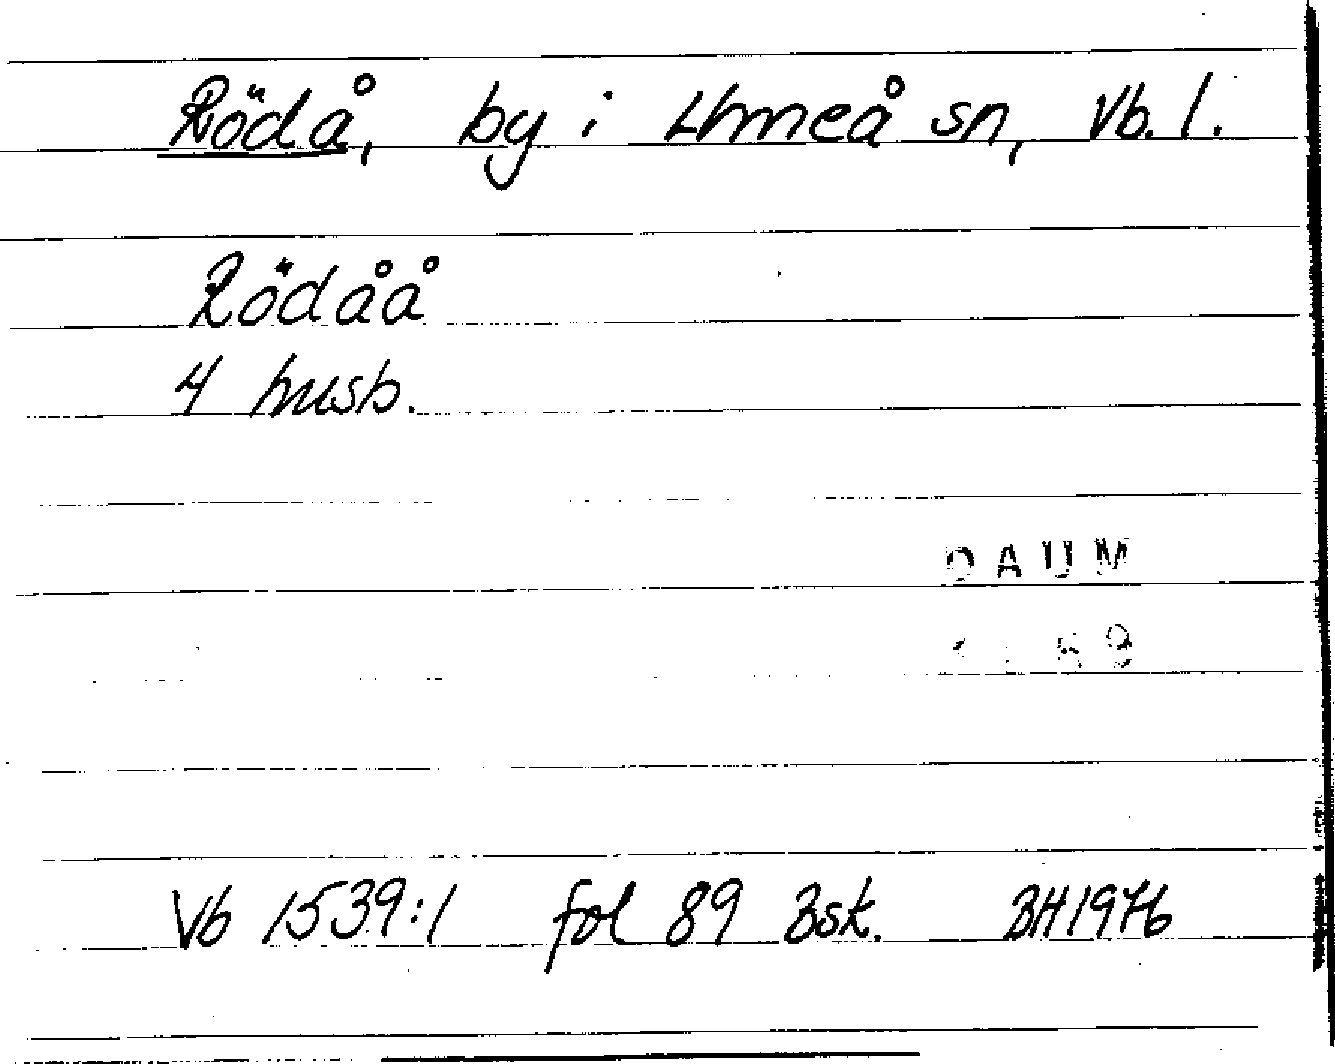 Rödå, by i Umeå sn, Vb. l.
Rödåå
4 husb.
DAUM
Vb 1539:1 fol 89 Bsk. BH 1976